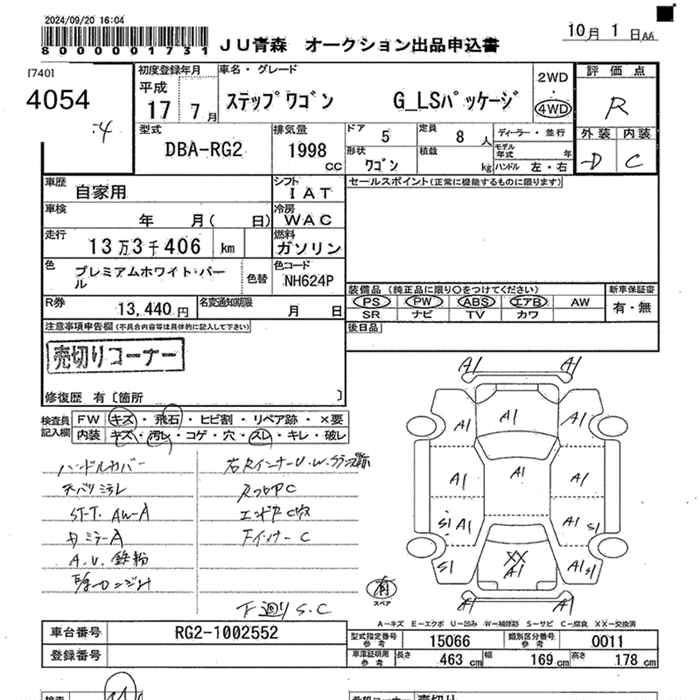 2024/09/20 16:04
8000001731
JU青森 オークション出品申込書
10月 1日AA
[740]
4054
初度登録年月
平成
17 7月
車名・グレード
ステップワゴン G_LSパッケージ
2WD
・
4WD
評価点
R
外装 内装
D C
型式
DBA-RG2
排気量
1998
CC
ドア 5
定員 8 人
形状
ワゴン
積載
kg
ディーラー・並行
モデル年式 年
ハンドル 左・右
車歴
自家用
シフト
IAT
セールスポイント(正常に機能するものに限ります)
車検
年 月( 日)
冷房
WAC
走行
13万3千406 km
燃料
ガソリン
色
プレミアムホワイト・パール
色替
色コード
NH624P
装備品 (純正品に限り○をつけてください)
新車保証書
PS PW ABS エアB AW
有・無
SR ナビ TV カワ
R券
13,440円
名変通知期限
月 日
後日品
注意事項申告欄(不具合内容等は具体的に記入して下さい)
売切りコーナー
修復歴 有〔箇所 〕
検査員
記入欄
FW キズ・飛石・ヒビ割・リペア跡・×要
内装 キズ・汚レ・コゲ・穴・スレ・キレ・破レ
ハンドルカバー
ネバリ ミラレ
ST-T. AW-A
ミラーA
A.U. 鉄粉
Rフロア C
エンドP
Fインナー C
下廻り S.C
A1 A1
A1 A1 A1
A1 A1 A1
S1 A1 A1 S1
S1 XX A1 A1 S1
A1 A1
有
スペア
A-キズ E-エクボ U-凹み W-補修跡 S-サビ C-腐食 XX-交換済
車台番号
RG2-1002552
登録番号
型式指定番号
参考
15066
類別区分番号
参考
0011
車庫証明用
参考
長さ 463 cm
幅 169 cm
高さ 178 cm